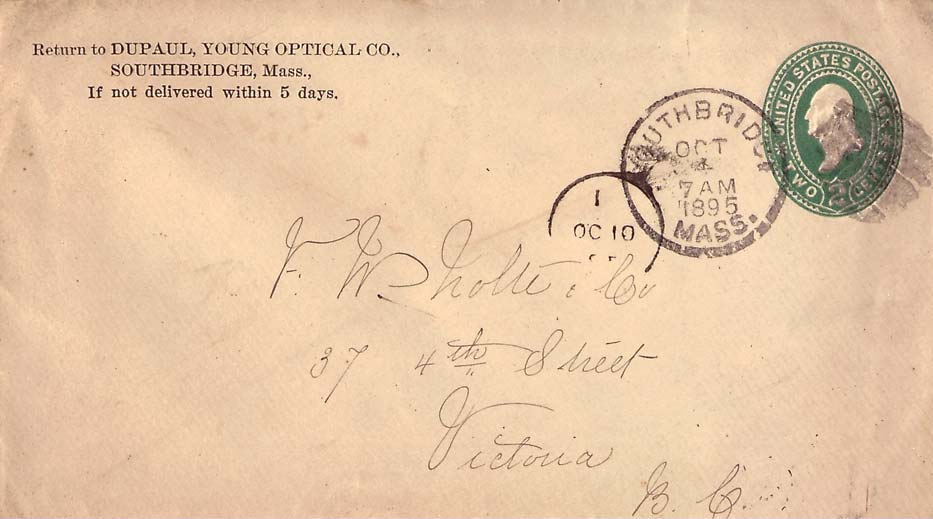 Return to DUPAUL, YOUNG OPTICAL CO.,
SOUTHBRIDGE, Mass.,
If not delivered within 5 days.
UNITED STATES POSTAGE
TWO CENTS
2
SOUTHBRIDGE
OCT
7 AM
1895
MASS.
1
OC 10
F. W. Nolte & Co
37 4th Street
Victoria
B. C.